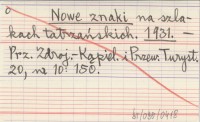 Nowe znaki na szla-
kach tatrzańskich. 1931. —
Prz. Zdroj.-Kąpiel. i Przew. Turyst.
20, nr 10: 150.